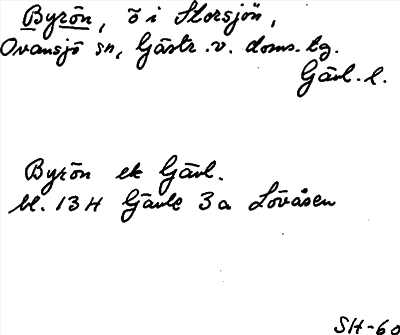 Byrön, ö i Storsjön,
Ovansjö sn, Gästr. v. doms. tg.
Gävl. l.
Byrön ek Gävl.
bl. 13H Gävle 3a Lövåsen
SH-60